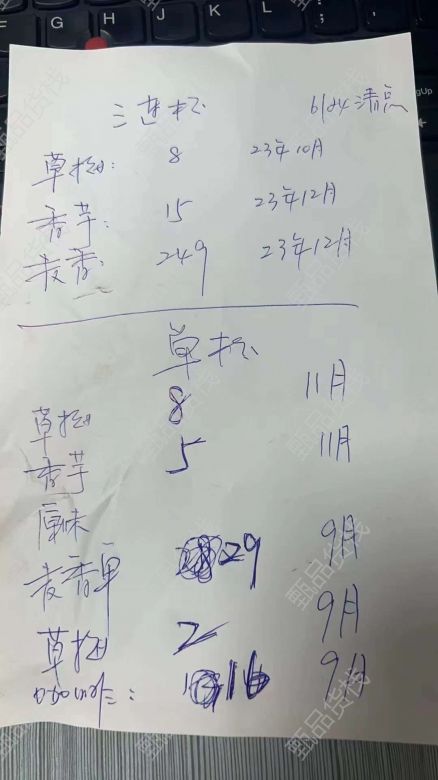 三连杯 6/24清点
草莓: 8 23年10月
香芋: 15 23年12月
麦香: 249 23年12月
单杯
草莓 8 11月
香芋 5 11月
原味
麦香单 29 9月
草莓 2 9月
16 9月
甄品货栈